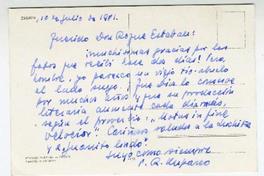 10 de Julio de 1981.
Querido Don Roque Esteban:
¡muchísimas gracias por las
fotos que recibí hace dos días! Pero,
hombre, yo parezco un viejo tío-abuelo
al lado suyo. ¡Que Dios lo conserve
por muchos años y que su producción
literaria aumente cada
según el proverbio "Motus in fine
velocior". Cariñoso saludo a la
y
Suyo como siempre
P. A.